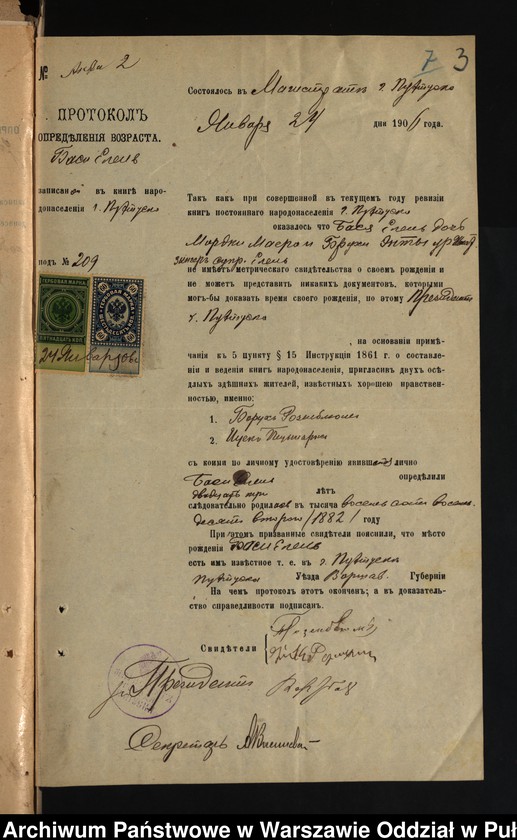 7 3
№ Акта 2
ПРОТОКОЛЪ
ОПРЕДѢЛЕНІЯ ВОЗРАСТА.
Баси Елень
записанной въ книгѣ народонаселенія г. Пултуска
подъ № 209
ГЕРБОВАЯ МАРКА
24 Января
Состоялось въ Магистратѣ г. Пултуска
Января 24 дня 1906 года.
Такъ какъ при совершенной въ текущемъ году ревизіи
книгъ постояннаго народонаселенія г. Пултуска
оказалось что Бася Елень дочь
Мордки
супр. Елень
не имѣетъ метрическаго свидѣтельства о своемъ рожденіи и
не можетъ представить никакихъ документовъ, которыми
могъ-бы доказать время своего рожденія, по этому Президентъ
г. Пултуска
, на основаніи примѣ-
чанія къ 5 пункту § 15 Инструкціи 1861 г. о составленіи
и веденіи книгъ народонаселенія, пригласивъ двухъ осѣ-
длыхъ здѣшнихъ жителей, извѣстныхъ хорошею нравствен-
ностью, именно:
1. Борухъ
2. Ицекъ
съ коими по личному удостовѣренію лично
Баси Елень опредѣлили
двадцать три лѣтъ
слѣдовательно родилась въ тысяча восемьсотъ восемь-
десятъ второго /1882/ году
При этомъ призванные свидѣтели пояснили, что мѣсто
рожденія Баси Елень
есть имъ извѣстное т. е. въ г. Пултускѣ
Пултуска Уѣзда Варшав. Губерніи
На чемъ протоколъ этотъ оконченъ; а въ доказатель-
ство справедливости подписанъ.
Свидѣтели
Президентъ
Секретарь
Archiwum Państwowe w Warszawie Oddział w Puł